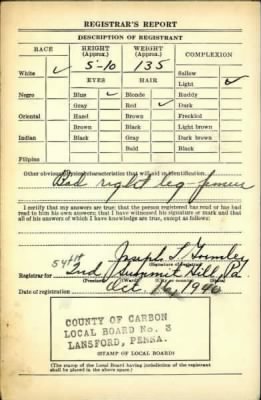 REGISTRAR'S REPORT
DESCRIPTION OF REGISTRANT
RACE HEIGHT (Approx.) WEIGHT (Approx.) COMPLEXION
5-10 135
White ✓ Sallow
EYES HAIR Light ✓
Negro Blue ✓ Blonde Ruddy
Gray Red ✓ Dark
Oriental Hazel Brown Freckled
Brown Black Light brown
Indian Black Gray Dark brown
Bald Black
Filipino
Other obvious physical characteristics that will aid in identification
Bad right leg-femur
I certify that my answers are true; that the person registered has read or has had
read to him his own answers; that I have witnessed his signature or mark and that
all of his answers of which I have knowledge are true, except as follows:
Joseph
541st (Signature of registrar)
Registrar for 2nd Summit Hill, Pa
(Precinct) (Ward) (City or county) (State)
Date of registration Oct. 16, 1940
COUNTY OF CARBON
LOCAL BOARD No. 3
LANSFORD, PENNA.
(STAMP OF LOCAL BOARD)
(The stamp of the Local Board having jurisdiction of the registrant
shall be placed in the above space.)